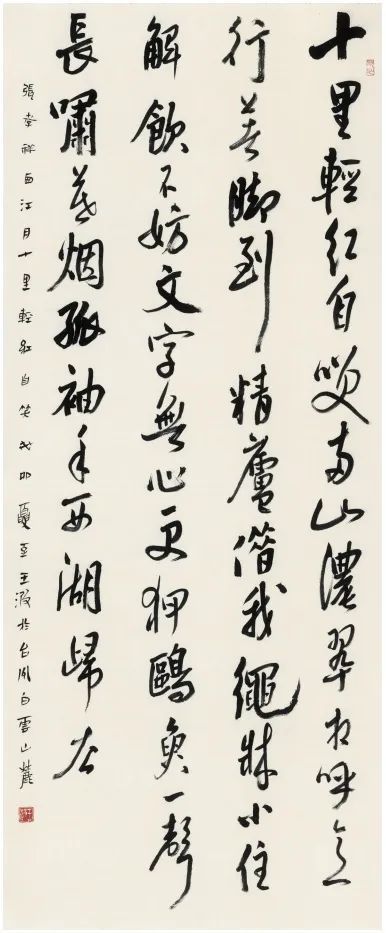 十里輕紅自咲兩山濃翠相呼意
行著脚到精廬借我繩牀小住
解飲不妨文字無心更狎鷗魚一聲
長嘯暮烟孤袖手西湖歸去
張孝祥西江月十里輕紅自笑 夏至王波於台州白雲山麓